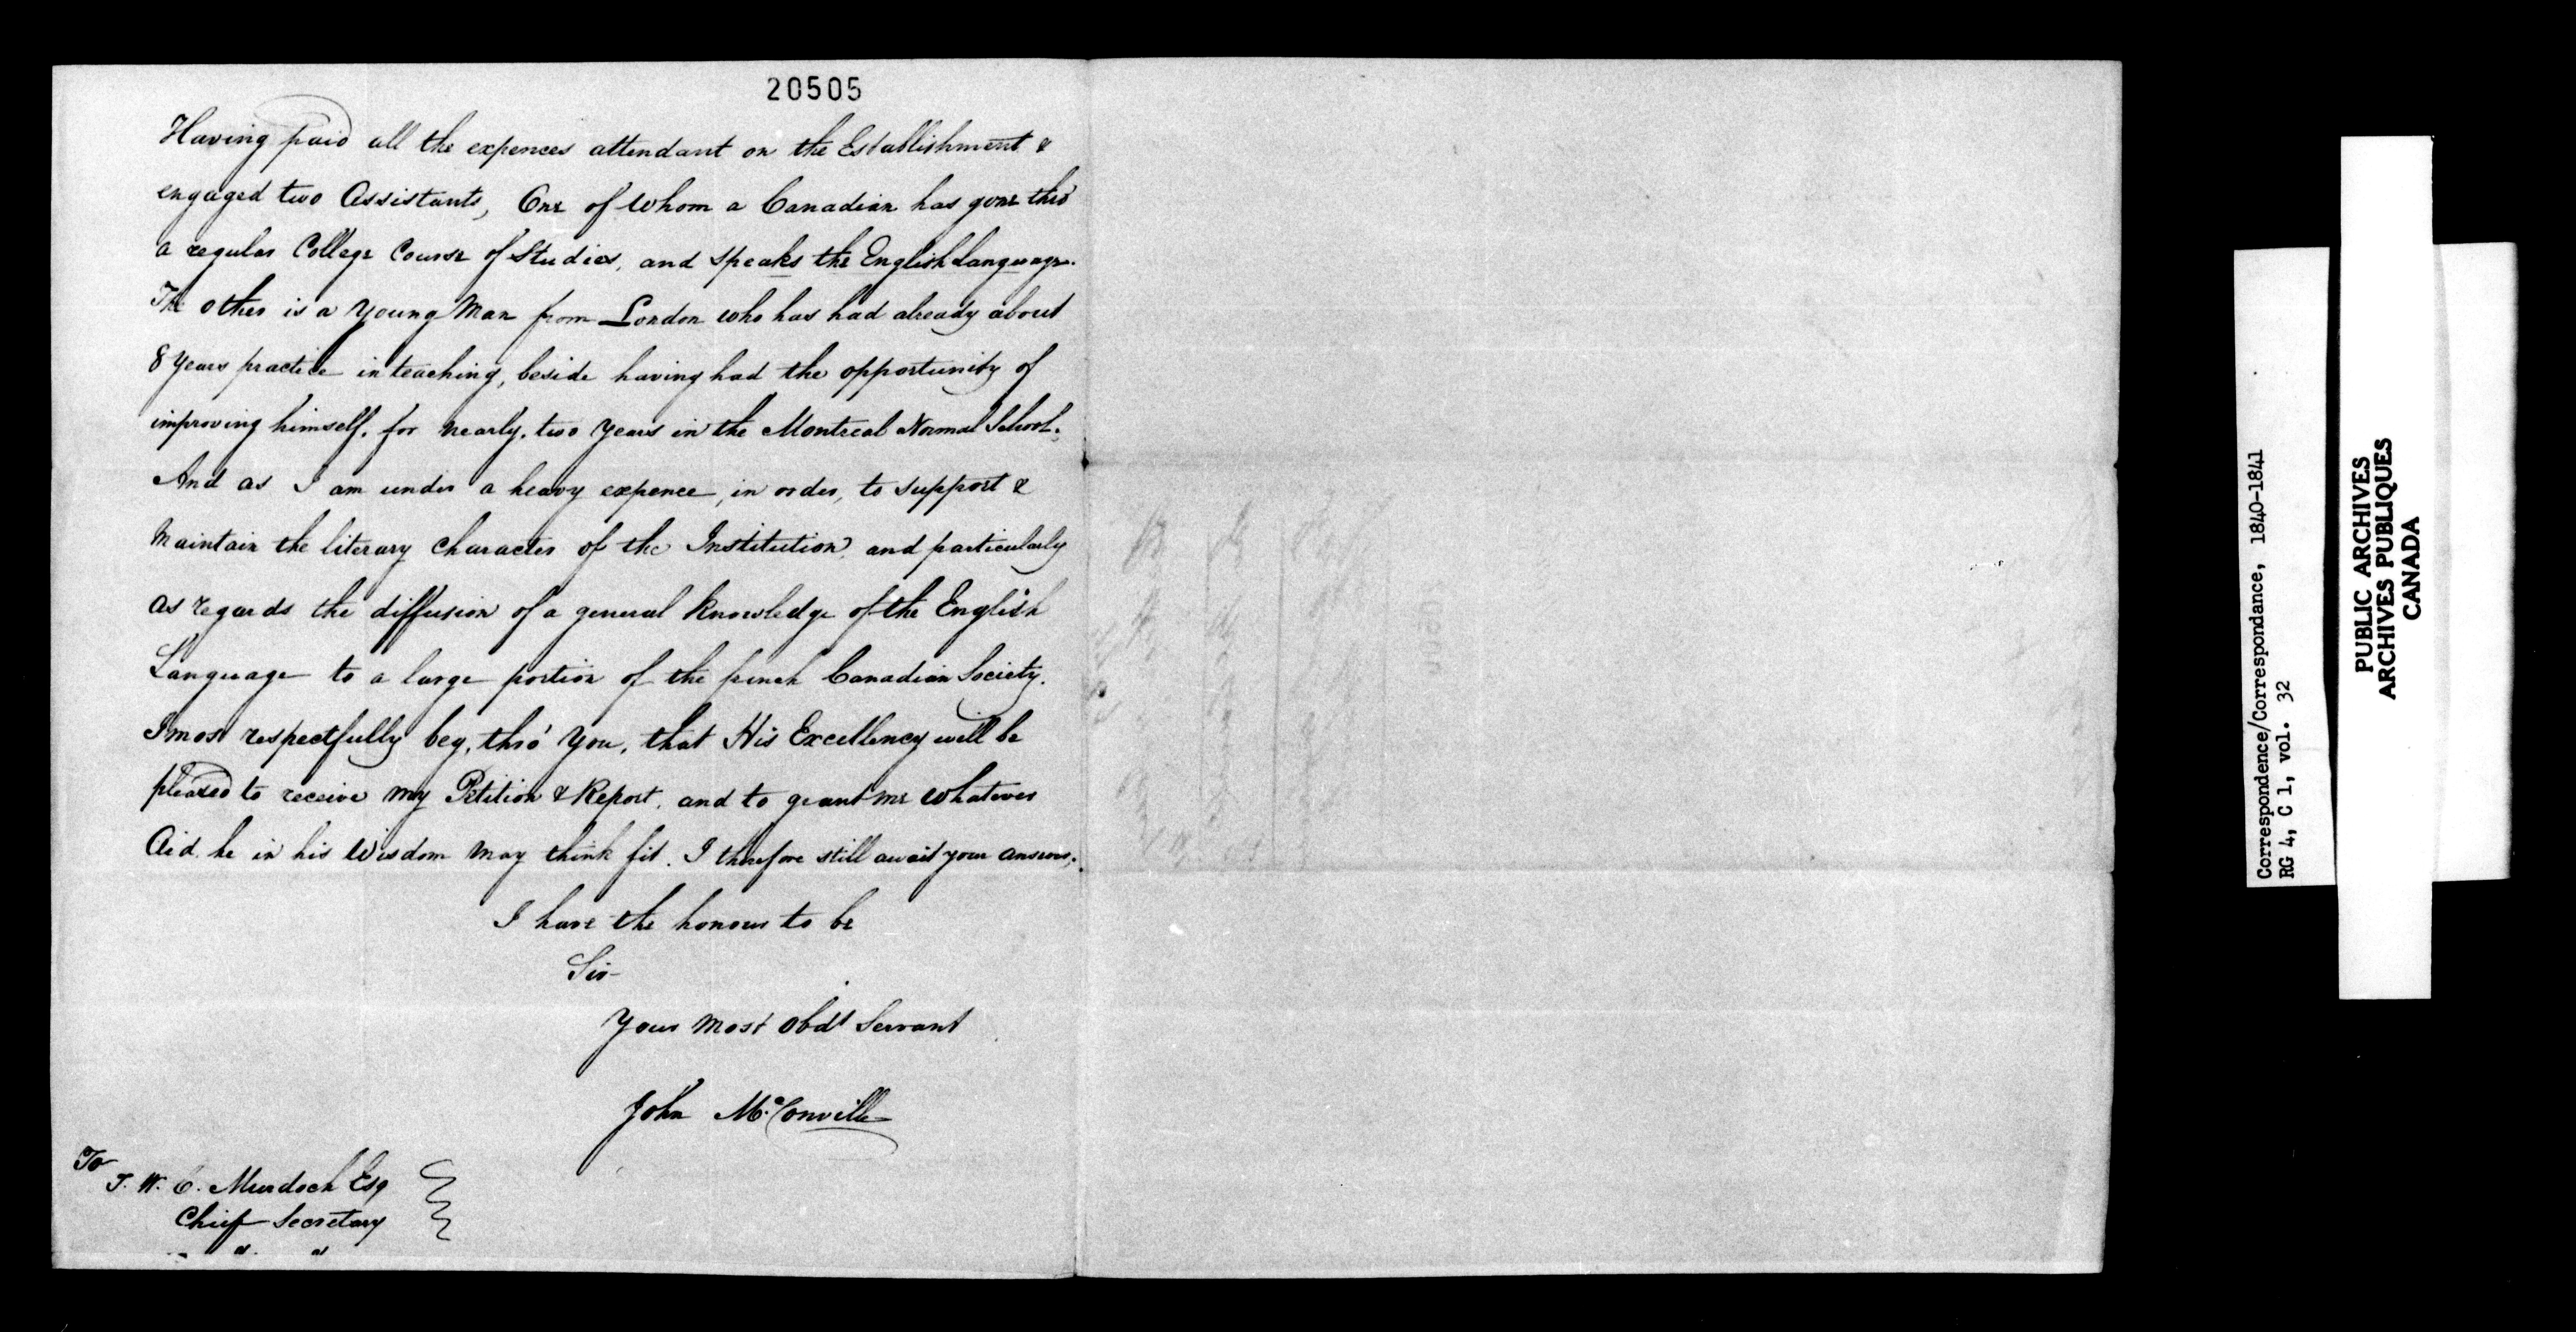 20505
Having paid all the expences attendant on the Establishment &
engaged two Assistants, One of whom a Canadian has gone thro'
a regular College Course of Studies, and speaks the English Language.
The other is a young Man from London who has had already about
8 years practice in teaching, beside having had the opportunity of
improving himself, for nearly, two years in the Montreal Normal School.
And as I am under a heavy expence, in order, to support &
Maintain the literary Character of the Institution, and particularly
as regards the diffusion of a general knowledge of the English
Language to a large portion of the french Canadian Society.
I most respectfully beg, thro' You, that His Excellency will be
pleased to receive my Petition & Report, and to grant me whatever
Aid he in his Wisdom may think fit. I therefore still await your answer,
I have the honour to be
Sir
Your most obdt Servant
John McConville
To
T. W. C. Murdoch Esq
Chief Secretary
" " "
Correspondence/Correspondance, 1840-1841
RG 4, C 1, vol. 32
PUBLIC ARCHIVES
ARCHIVES PUBLIQUES
CANADA